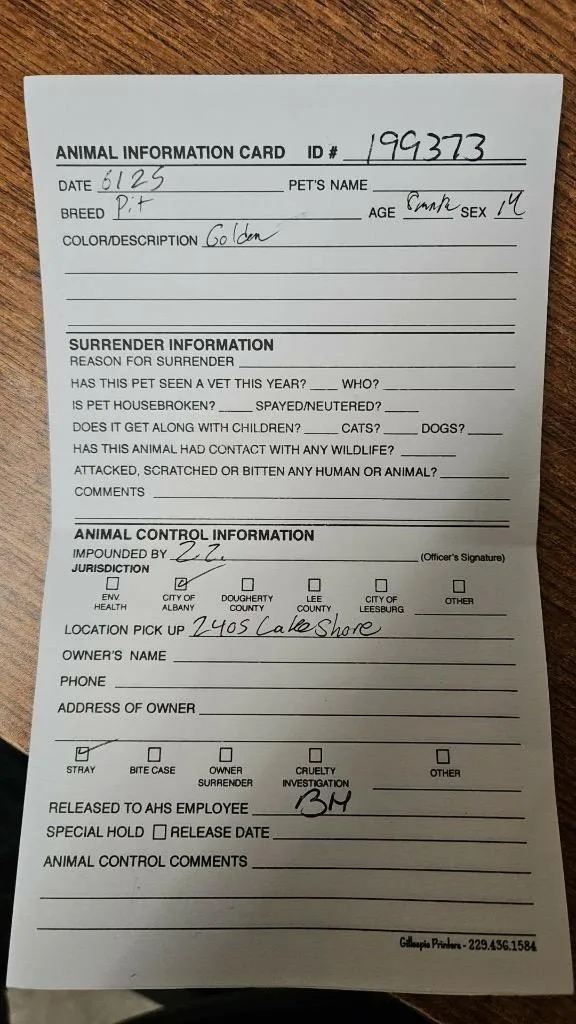 ANIMAL INFORMATION CARD ID # 199373
DATE 6125 PET'S NAME
BREED Pit AGE SEX M
COLOR/DESCRIPTION Golden
SURRENDER INFORMATION
REASON FOR SURRENDER
HAS THIS PET SEEN A VET THIS YEAR? WHO?
IS PET HOUSEBROKEN? SPAYED/NEUTERED?
DOES IT GET ALONG WITH CHILDREN? CATS? DOGS?
HAS THIS ANIMAL HAD CONTACT WITH ANY WILDLIFE?
ATTACKED, SCRATCHED OR BITTEN ANY HUMAN OR ANIMAL?
COMMENTS
ANIMAL CONTROL INFORMATION
IMPOUNDED BY Z.Z. (Officer's Signature)
JURISDICTION
ENV. HEALTH CITY OF ALBANY DOUGHERTY COUNTY LEE COUNTY CITY OF LEESBURG OTHER
LOCATION PICK UP 2405 Lake Shore
OWNER'S NAME
PHONE
ADDRESS OF OWNER
STRAY BITE CASE OWNER SURRENDER CRUELTY INVESTIGATION OTHER
RELEASED TO AHS EMPLOYEE BM
SPECIAL HOLD RELEASE DATE
ANIMAL CONTROL COMMENTS
Gillespie Printers - 229.436.1584